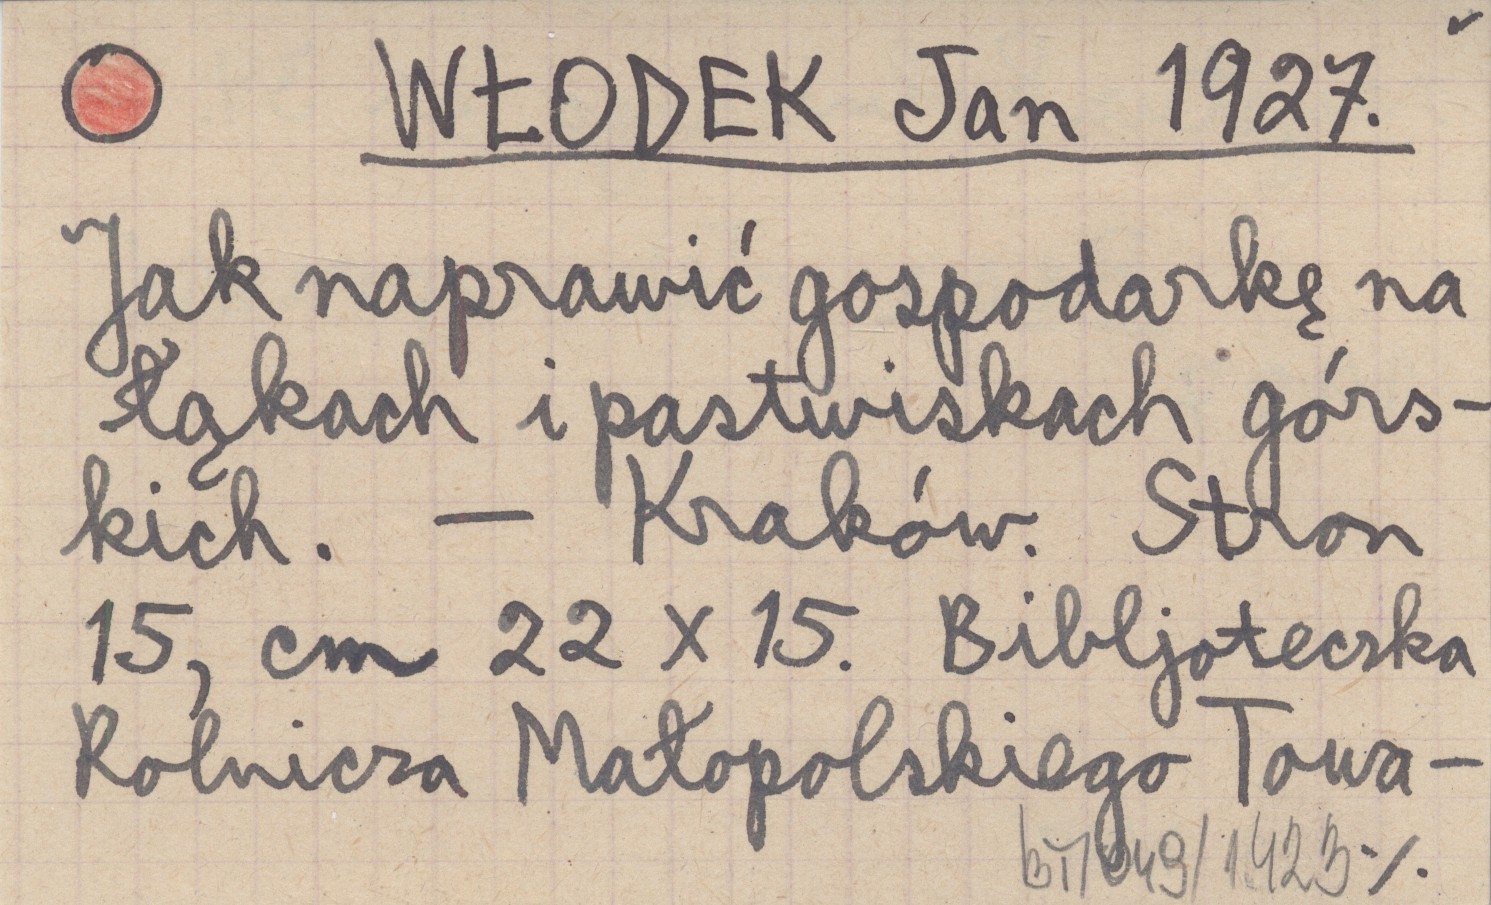 WŁODEK Jan 1927.
Jak naprawić gospodarkę na
łąkach i pastwiskach górs-
kich. — Kraków. Stron
15, cm 22 x 15. Bibljoteczka
Rolnicza Małopolskiego Towa-
/1423-/.